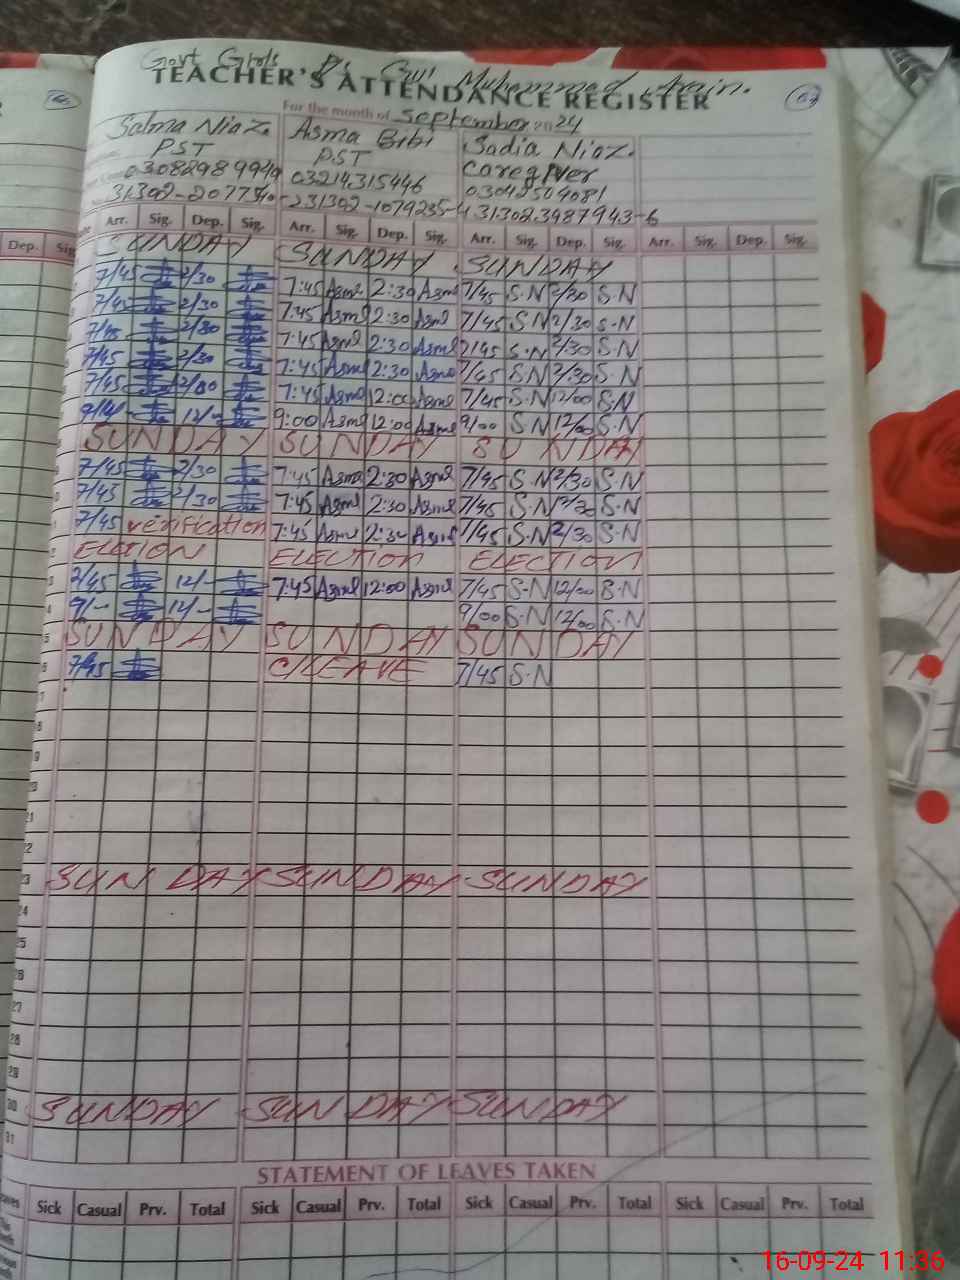 Govt Girls Muhammad Arain.
TEACHER'S ATTENDANCE REGISTER
67
For the month of September 2024
Salma Niaz. Asma Bibi Sadia Niaz.
PST PST Caregiver
03082989949 03214315446 03042504081
31302-207734 31302-1079235-4 31302.3987943-6
Dep. Sig. Arr. Sig. Dep. Sig. Arr. Sig. Dep. Sig. Arr. Sig. Dep. Sig. Arr. Sig. Dep. Sig.
SUNDAY SUNDAY SUNDAY
7/45 2/30 7:45 Asma 2:30 Asma 7/45 S.N 2/30 S.N
7/45 2/30 7:45 Asma 2:30 Asma 7/45 S.N 2/30 S.N
7/45 2/30 7:45 Asma 2:30 Asma 7/45 S.N 2/30 S.N
7/45 2/30 7:45 Asma 2:30 Asma 7/45 S.N 2/30 S.N
7/45 7:45 Asma 12:00 Asma 7/45 S.N 12/00 S.N
12/- 9:00 Asma 12:00 Asma 9/00 S.N 12/00 S.N
SUNDAY SUNDAY SUNDAY
7/45 2/30 7:45 Asma 2:30 Asma 7/45 S.N 2/30 S.N
7/45 2/30 7:45 Asma 2:30 Asma 7/45 S.N 2/30 S.N
7/45 verification 7:45 Asma 2:30 Asma 7/45 S.N 2/30 S.N
ELCTION ELECTION ELECTION
7/45 12/- 7:45 Asma 12:00 Asma 7/45 S.N 12/00 S.N
9/- 12/- 9/00 S.N 12/00 S.N
SUNDAY SUNDAY SUNDAY
7/45 C/LEAVE 7/45 S.N
22
23 SUNDAY SUNDAY SUNDAY
24
25
26
27
28
29
30 SUNDAY SUNDAY SUNDAY
31
STATEMENT OF LEAVES TAKEN
Sick Casual Prv. Total Sick Casual Prv. Total Sick Casual Prv. Total Sick Casual Prv. Total
16-09-24 11:36